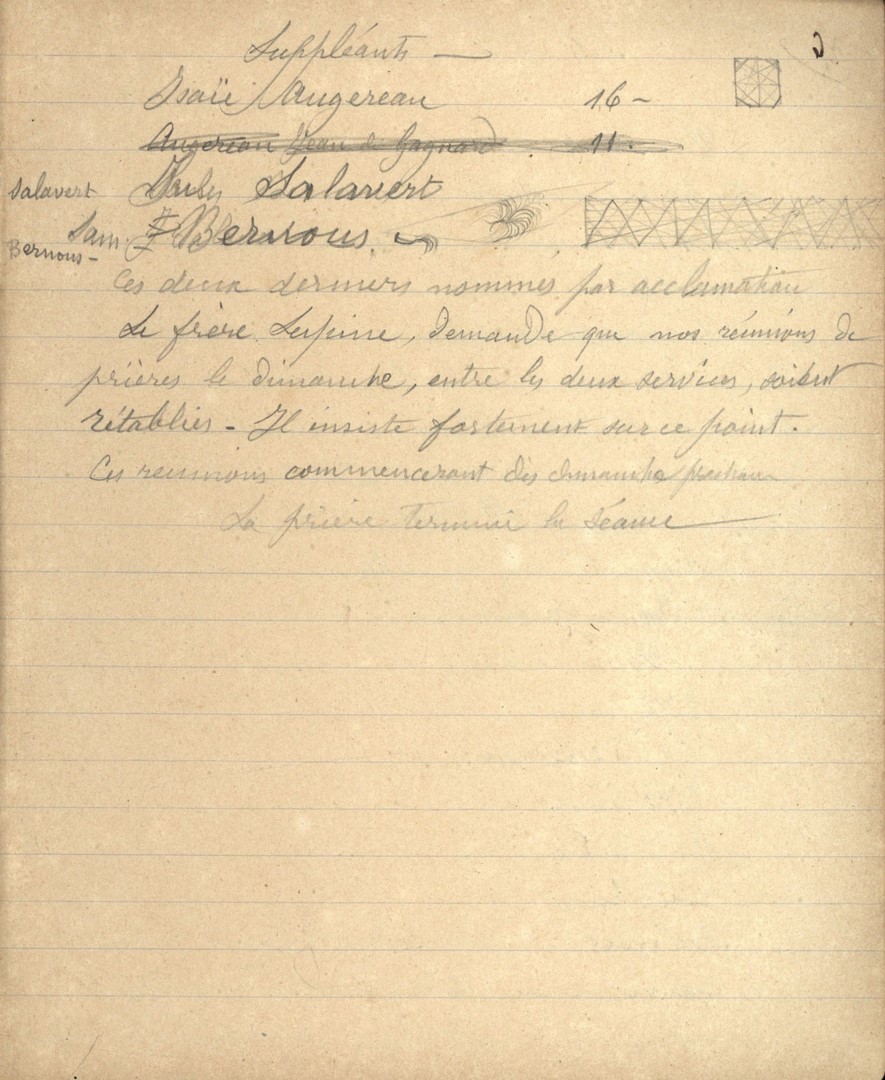 Suppléants —
Isaïe Augereau 16 –
Augereau Jean de Gagnard 11 -
Salavert Jules Salavert
Bernous – Sam. F Bernous.
Ces deux derniers nommés par acclamation
Le frère Lespine, demande que nos réunions de
prières le dimanche, entre les deux services, soient
rétablies - Il insiste fortement sur ce point.
Ces reunions commenceront dès dimanche prochain
La prière termine la séance —